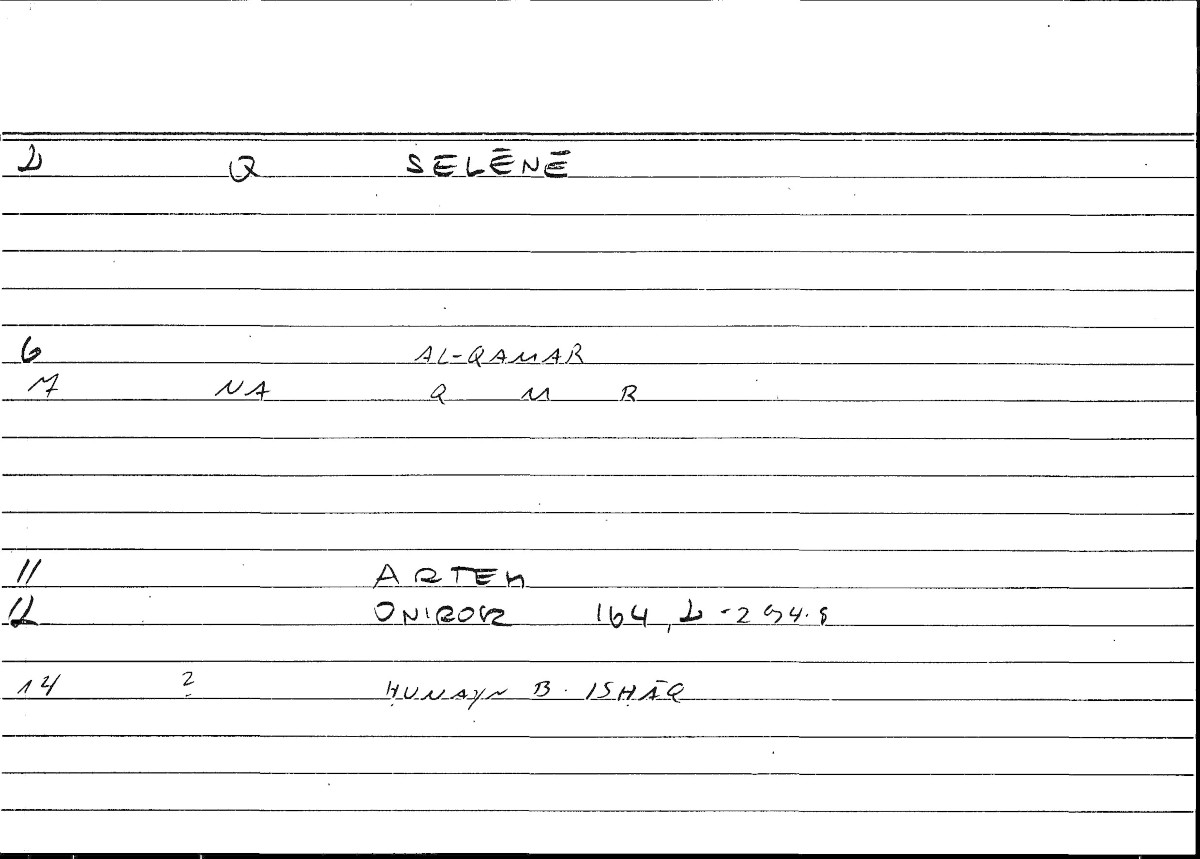 2 Q SELĒNĒ
6 AL-QAMAR
7 NA Q M R
11 ARTEM
12 ONIROCR 164, 2
14 2 ḤUNAYN B. ISḤĀQ